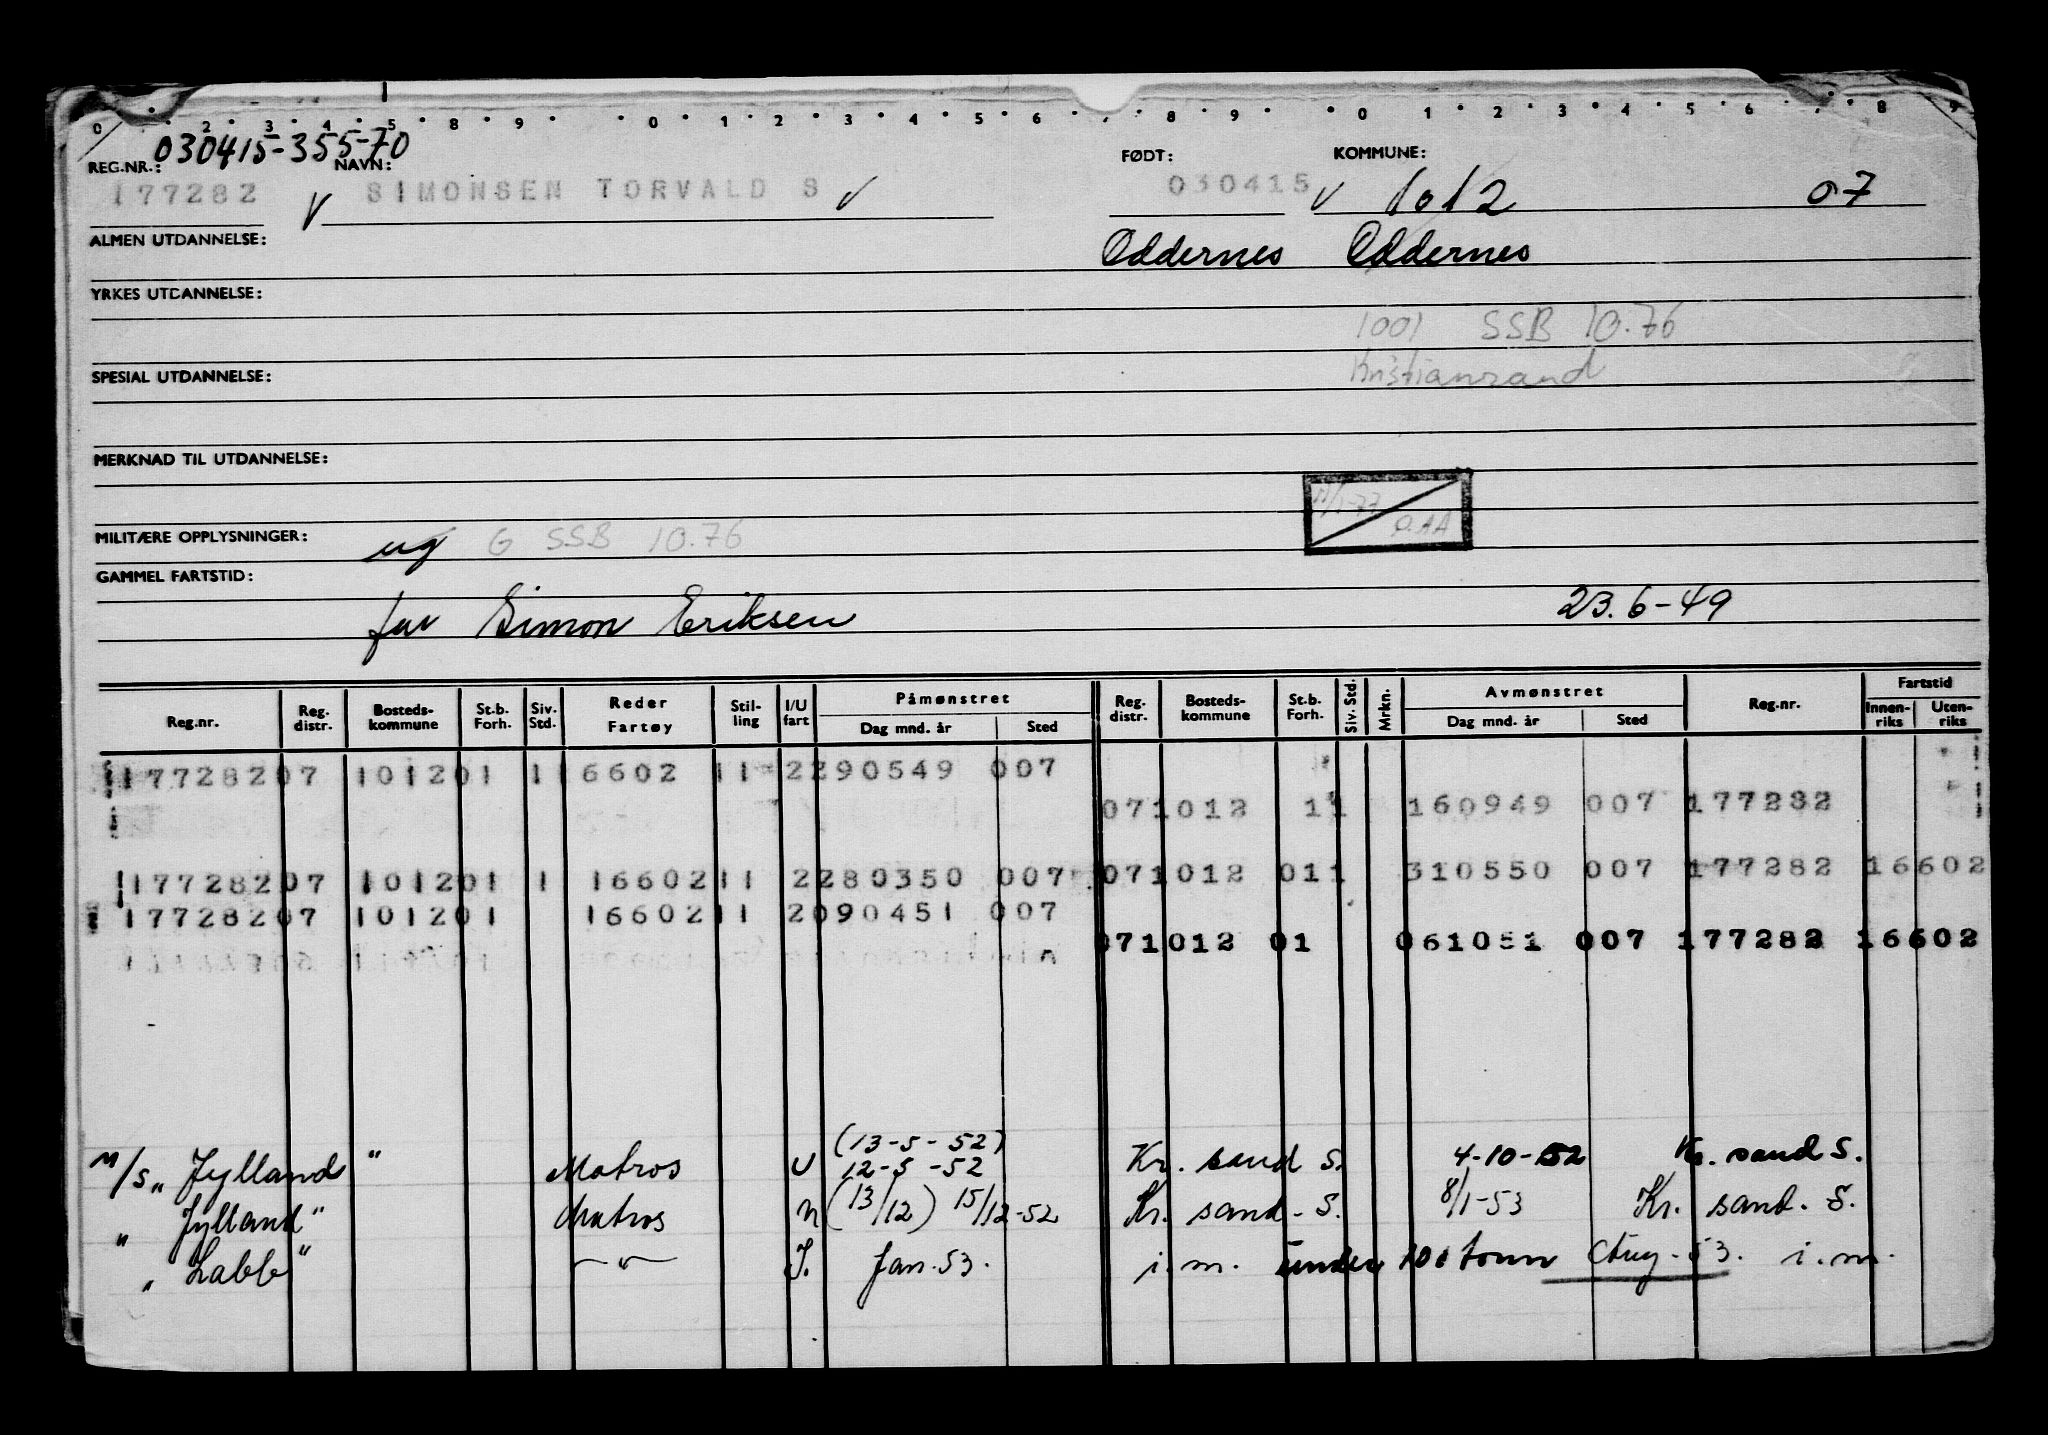 0 2 3 4 5 8 9 0 1 2 3 4 5 6 8 9 0 1 2 3 4 5 6 8 9
030415-355-70
REG.NR.: NAVN: FØDT: KOMMUNE:
177282 V SIMONSEN TORVALD S V 030415 V 1012 07
ALMEN UTDANNELSE: Oddernes Oddernes
YRKES UTDANNELSE:
1001 SSB 10.76
Kristiansand
SPESIAL UTDANNELSE:
MERKNAD TIL UTDANNELSE:
MILITÆRE OPPLYSNINGER: ug G SSB 10.76
GAMMEL FARTSTID:
far Simon Eriksen 23.6-49
Reg.nr. Reg. distr. Bosteds-kommune St.b. Forh. Siv. Std. Reder Fartøy Stil-ling I/U fart Påmønstret Dag mnd. år Sted Reg. distr. Bosteds-kommune St.b. Forh. Siv. Std. Mrkn. Avmønstret Dag mnd. år Sted Reg.nr. Fartstid Innen-riks Uten-riks
17728207 101201 1 16602 11 2290549 007
071012 11 160949 007 177282
17728207 101201 1 1660211 2280350 007 071012 011 310550 007 177282 16602
17728207 101201 1660211 2090451 007
071012 01 061051 007 177282 16602
(13-5-52)
M/S "Jylland" Matros U 12-5-52 Kr. sand S. 4-10-52 Kr. sand S.
" Jylland" Matros N (13/12) 15/12-52 Kr. sand. S. 8/1-53 Kr. sand. S.
" Labb" —"— I. Jan. 53. i.m. under 100 tonn Aug. 53. i.m.